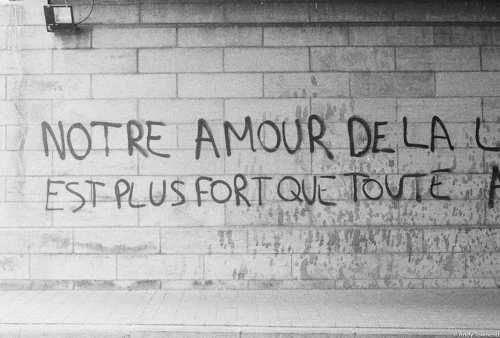 NOTRE AMOUR DE LA L
EST PLUS FORT QUE TOUTE A
© Andy Townend